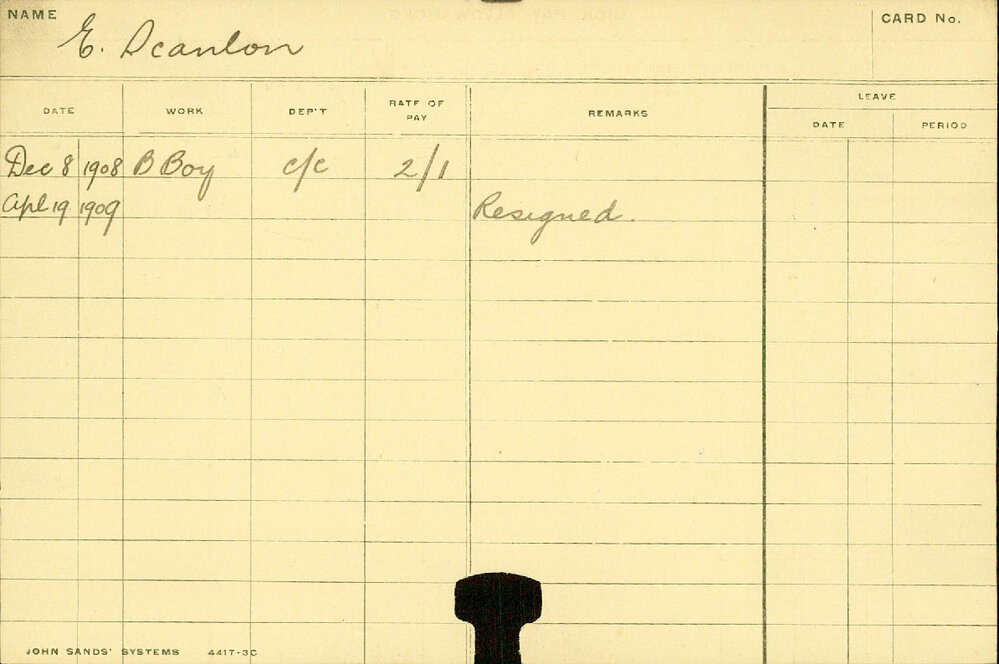 NAME
E. Scanlon
CARD No.
DATE WORK DEP'T RATE OF PAY REMARKS LEAVE
DATE PERIOD
Dec 8 1908 B Boy c/c 2/1
Apl 19 1909 Resigned.
JOHN SANDS' SYSTEMS 4417-3C